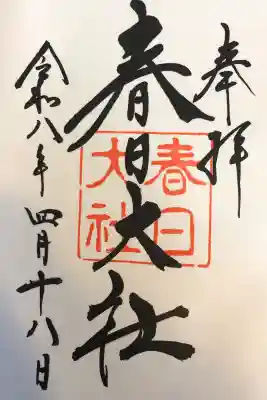 奉拝
春日大社
春日
大社
令和八年四月十八日